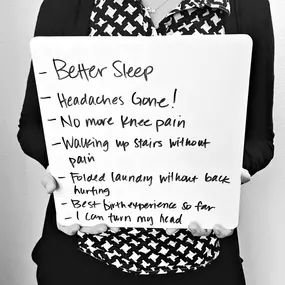 - Better Sleep
- Headaches Gone!
- No more knee pain
- Walking up stairs without
pain
- Folded laundry without back
hurting
- Best birth experience so far
- I can turn my head